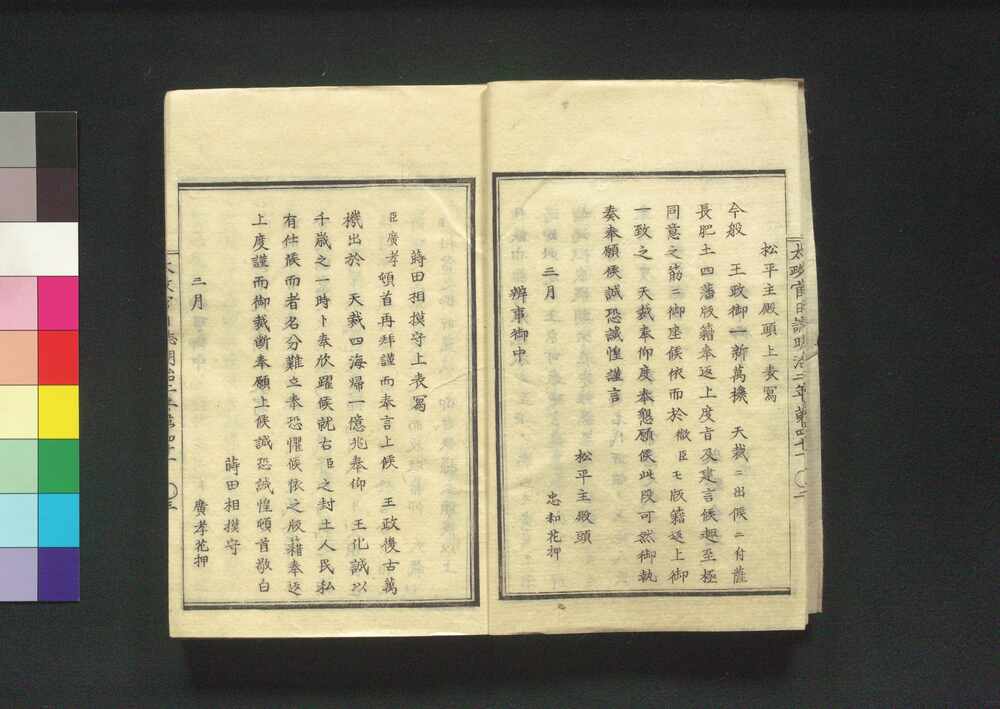 太政官日誌明治二年第四十一 〇二
松平主殿頭上表寫
今般 王政御一新萬機 天裁ニ出候ニ付薩
長肥土四藩版籍奉返上度旨及建言候趣至極
同意之筋ニ御座候依而於 微臣モ版籍返上御
一致之 天裁奉仰度奉懇願候此段可然御執
奏奉願候誠恐誠惶謹言
松平主殿頭
三月 忠和花押
辨事御中
蒔田相摸守上表寫
臣廣孝頓首再拜謹而奉言上候 王政復古萬
機出於 天裁四海帰一億兆奉仰 王化誠以
千歳之一時ト奉欣躍候就右臣之封土人民私
有仕候而者名分難立奉恐懼候依之版籍奉返
上度謹而御裁断奉願上候誠恐誠惶頓首敬白
蒔田相摸守
三月 廣孝花押